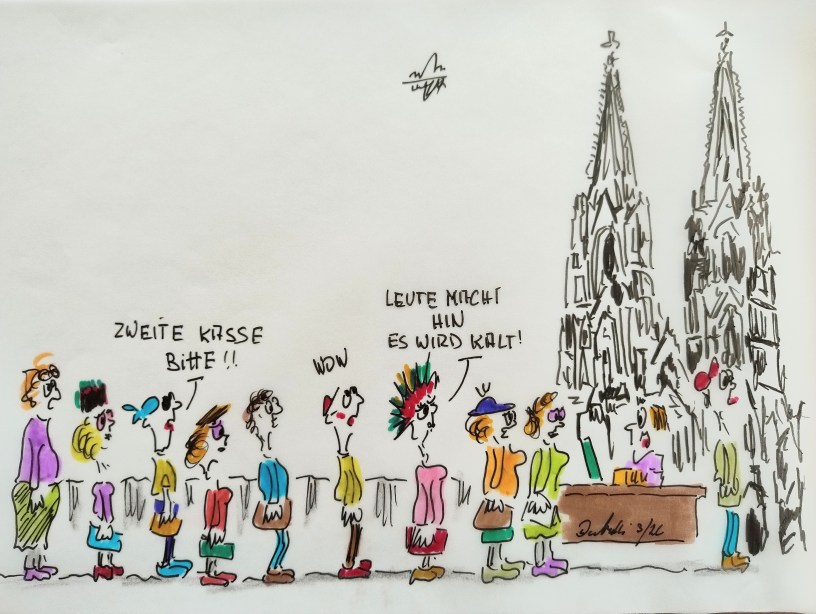 ZWEITE KASSE
BITTE!!
WOW
LEUTE MACHT
HIN
ES WIRD KALT!
3/26